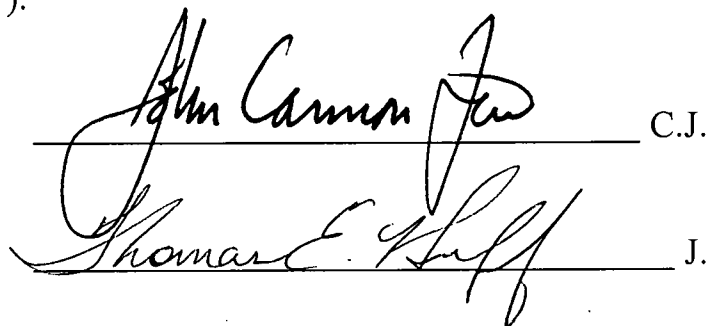 ).
John Cannon Few C.J.
Thomas E. Huff J.